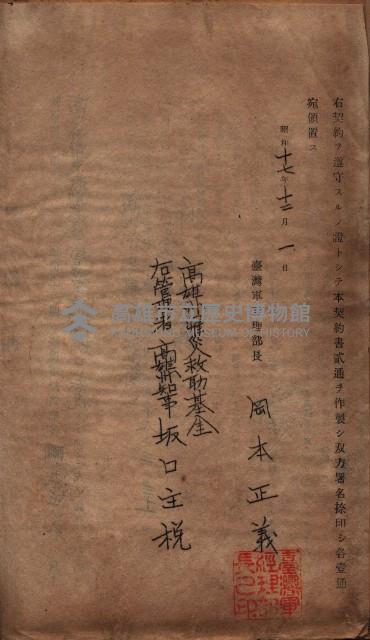 右契約ヲ遵守スルノ證トシテ本契約書貳通ヲ作製シ双方署名捺印シ各壹通
宛領置ス
昭和十七年十二月一日
臺灣軍經理部長
岡本正義
臺灣軍經理部長之印
高雄州罹災救助基金
右管理者高雄州知事坂口主税
高雄市立歷史博物館
KAOHSIUNG MUSEUM OF HISTORY